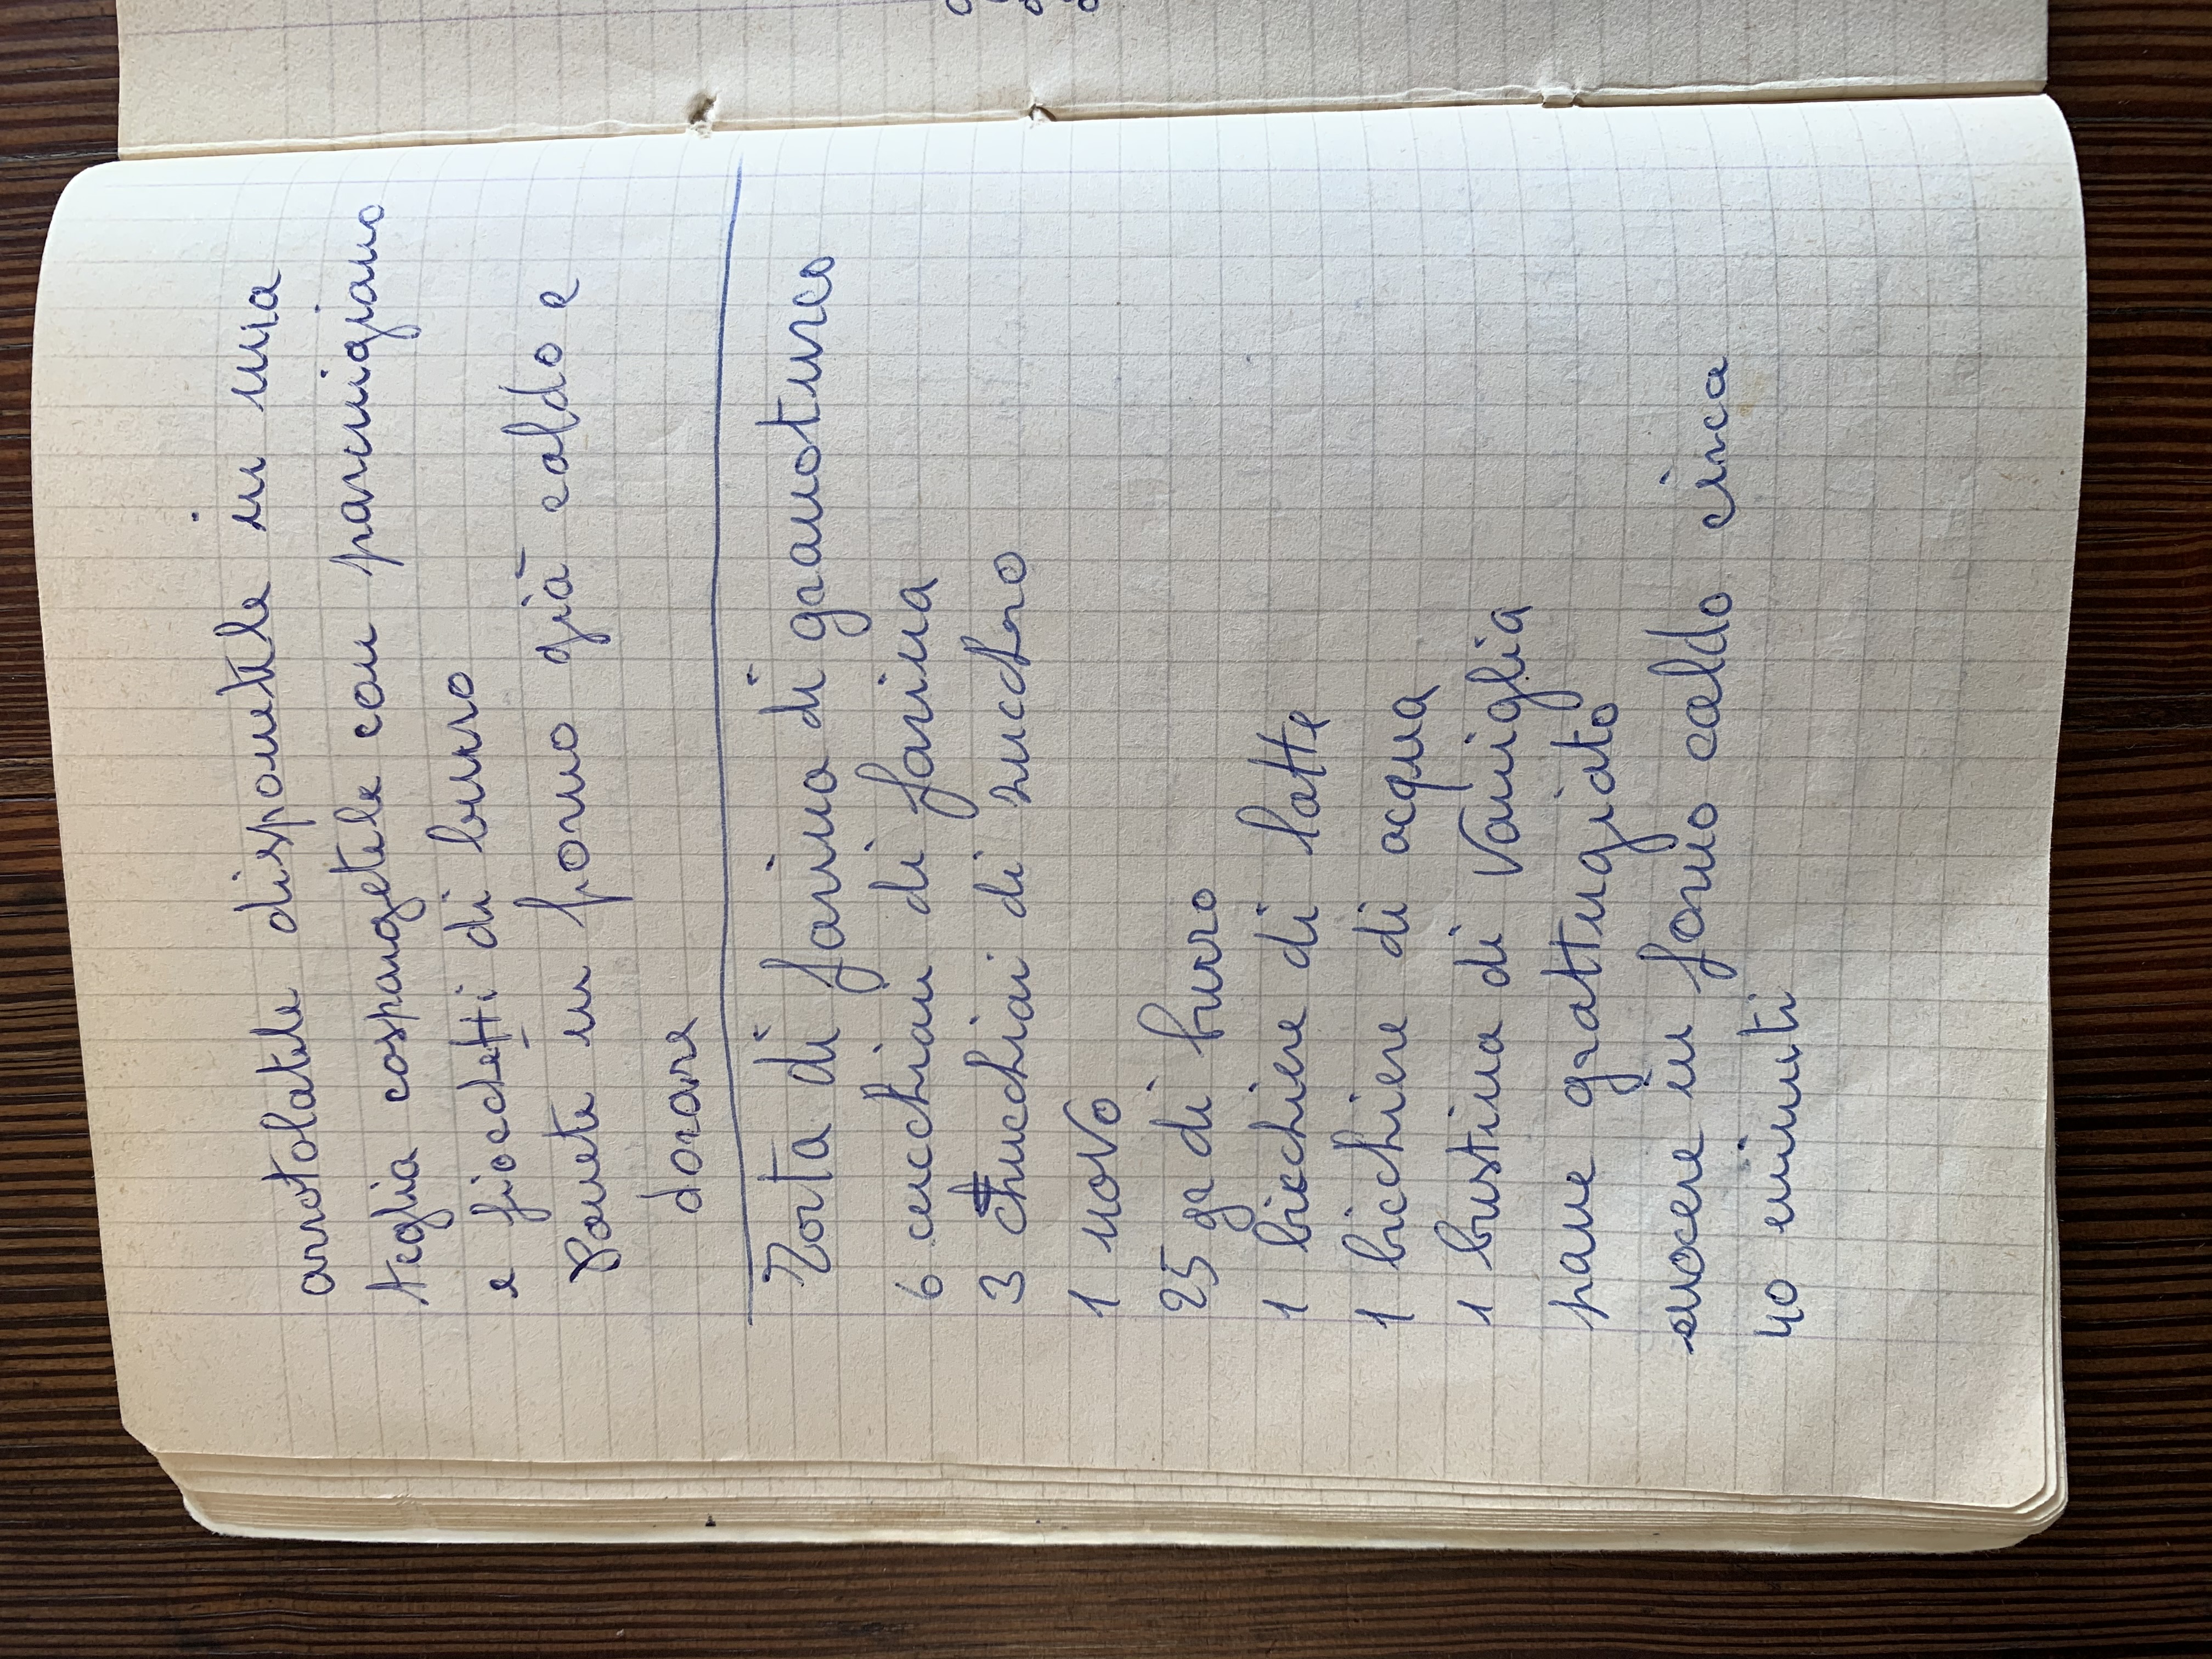 arrotolatele disponetele in una
teglia cospargetele con parmigiano
e fiocchetti di burro
Ponete in forno già caldo e
dorare
Torta di farina di granoturco
6 cucchiai di farina
3 cucchiai di zucchero
1 uovo
25 gr di burro
1 bicchiere di latte
1 bicchiere di acqua
1 bustina di Vaniglia
pane grattugiato
cuocere in forno caldo circa
40 minuti